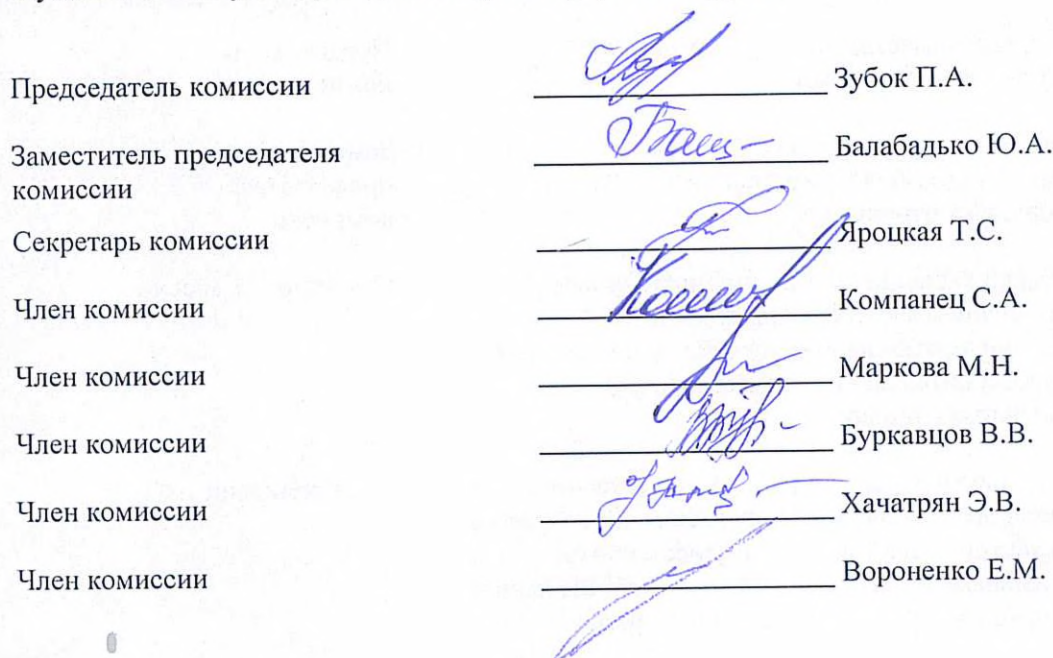 Председатель комиссии Зубок П.А.
Заместитель председателя Балабадько Ю.А.
комиссии
Секретарь комиссии Яроцкая Т.С.
Член комиссии Компанец С.А.
Член комиссии Маркова М.Н.
Член комиссии Буркавцов В.В.
Член комиссии Хачатрян Э.В.
Член комиссии Вороненко Е.М.